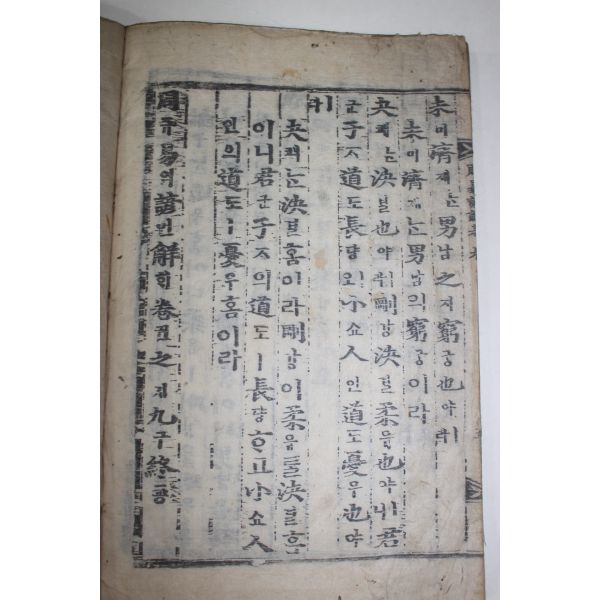 未미濟졔눈男남之지窮궁也야ㅣ라
未미濟졔눈男남의窮궁이라
夬쾌눈決결也야ㅣ라剛강決결柔유也야ㅣ니君
군子ᄌ道도長댱이오小쇼人인道도憂우也야
ㅣ라
夬쾌눈決결홈이라剛강이柔유를決결홈
이니君군子ᄌ의道도ㅣ長댱ᄒ고小쇼人
인의道도ㅣ憂우홈이라
周쥬易역諺언解ᄒᆡ卷권之지九구終죵